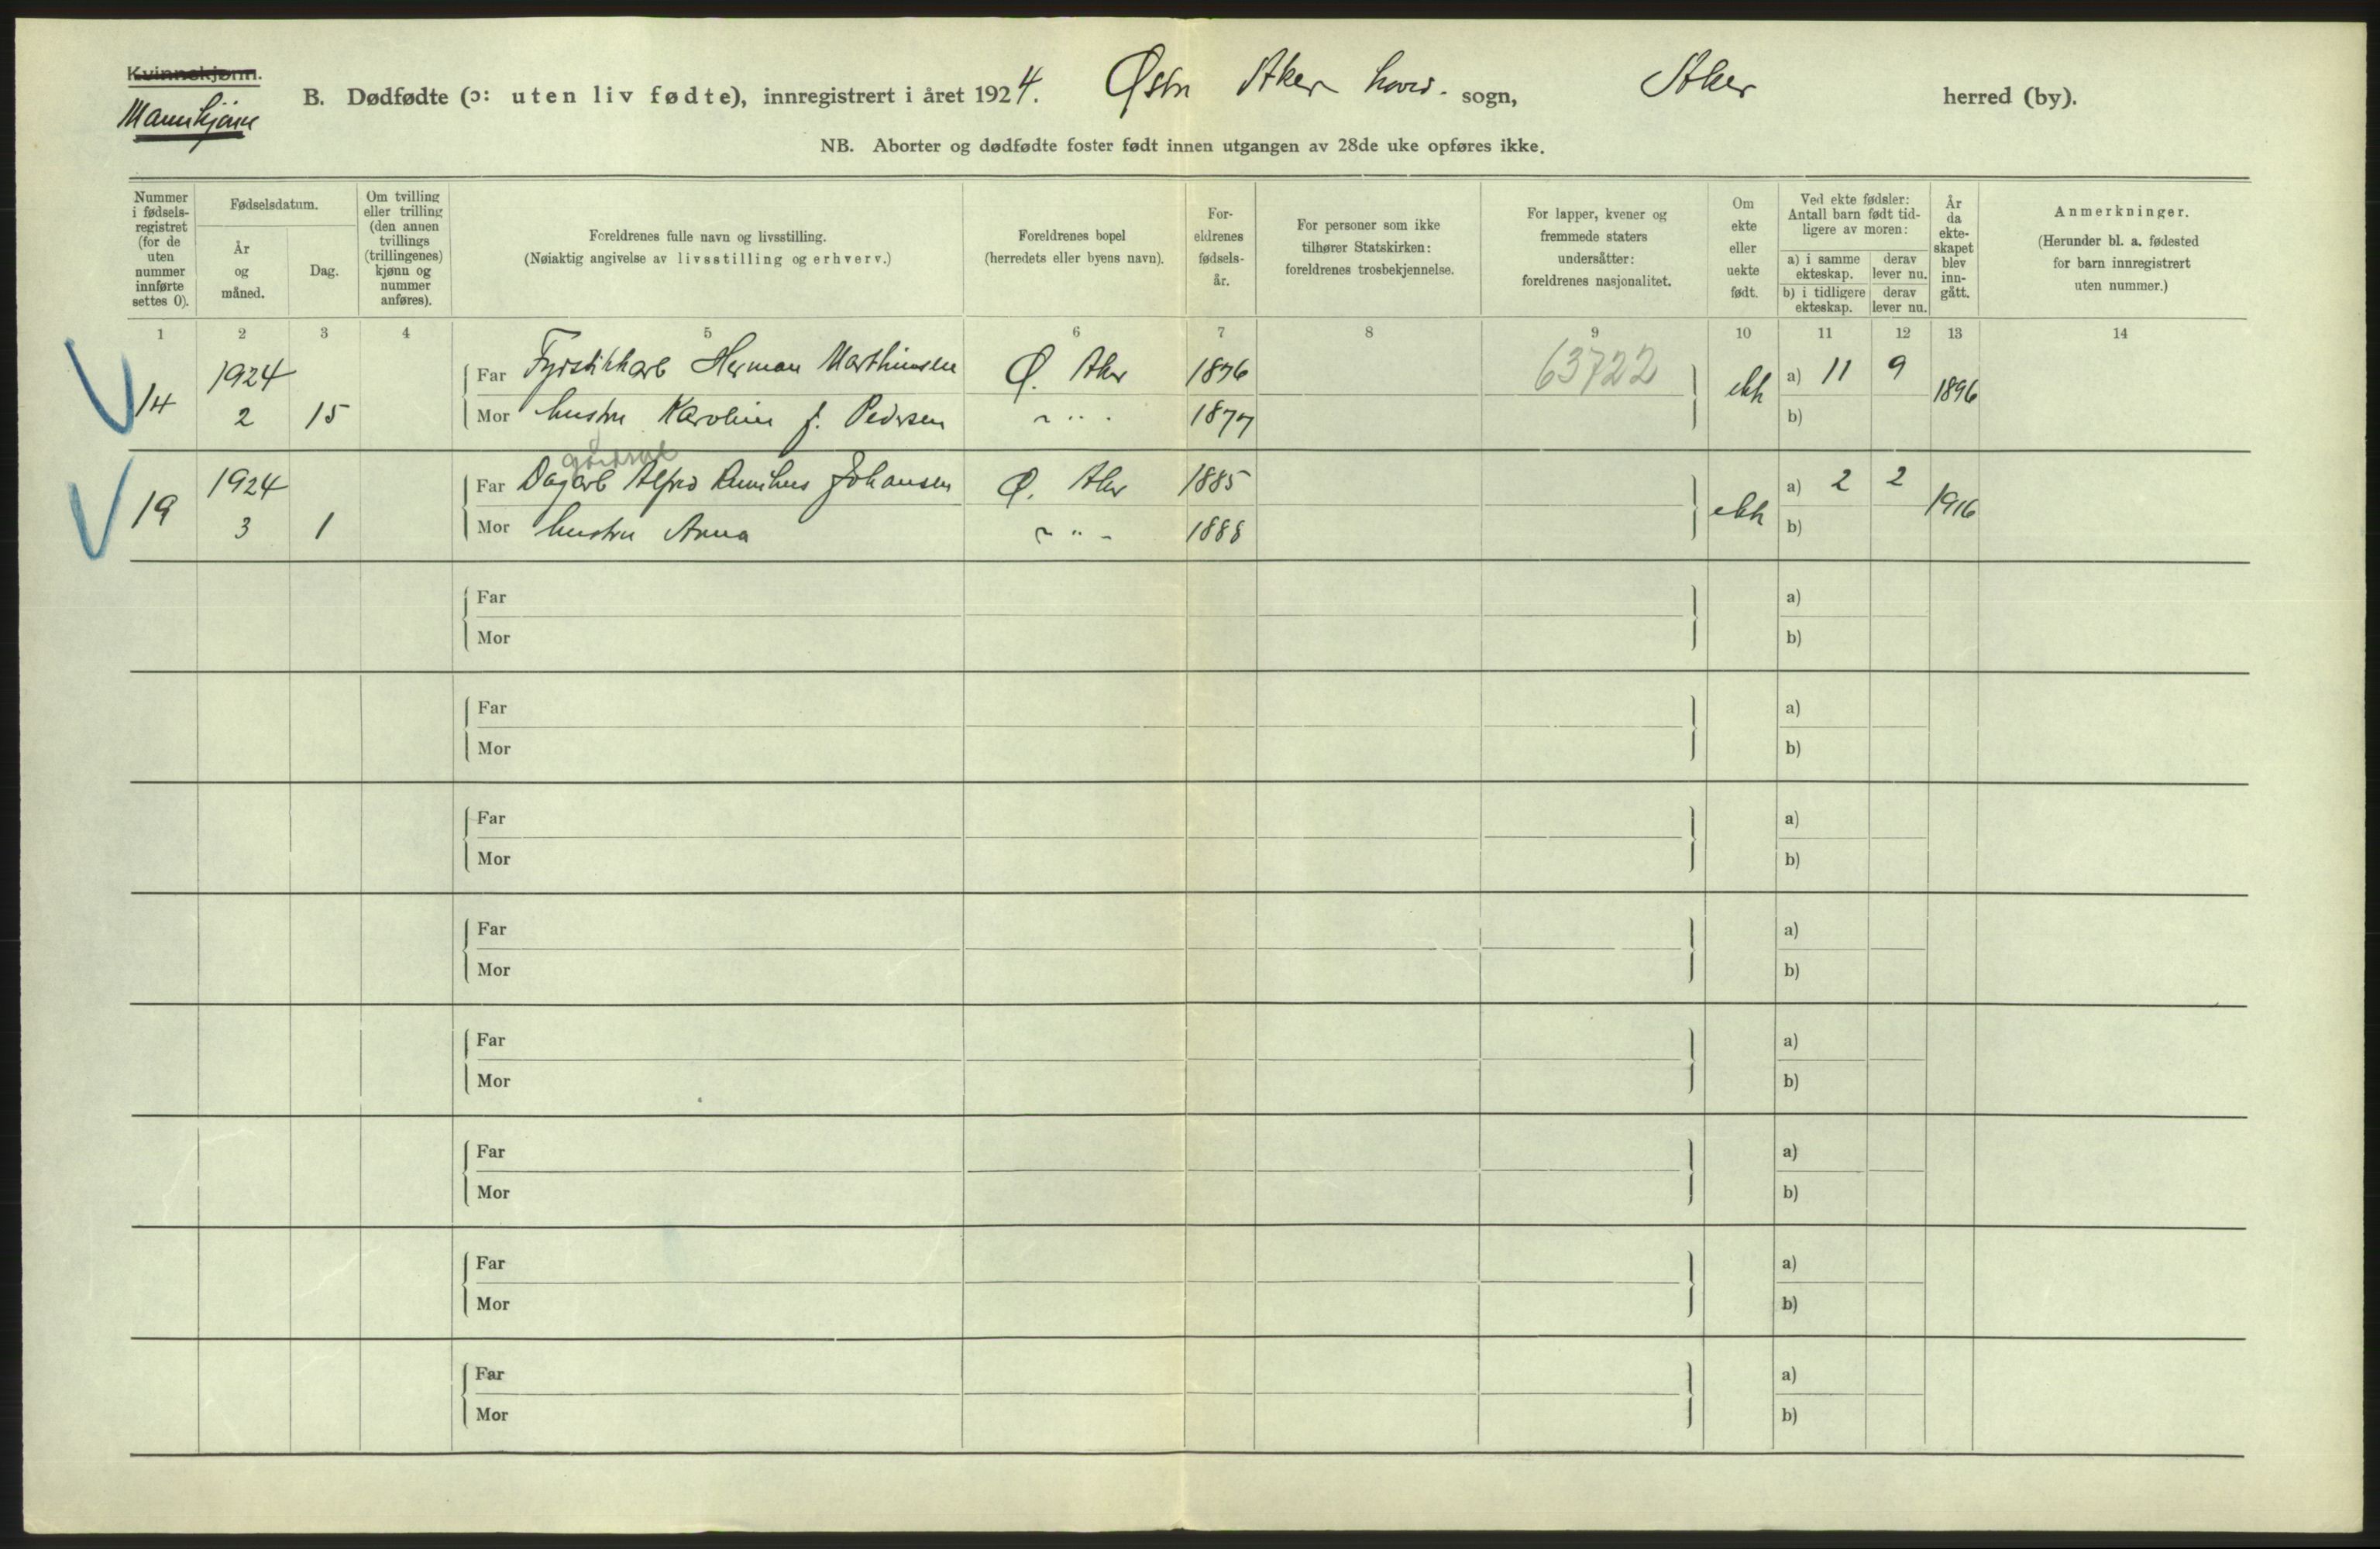 Kvinnekjønn.
Mannkjønn
B. Dødfødte (ɔ: uten liv fødte), innregistrert i året 1924. Østre Aker hoved- sogn, Aker herred (by).
NB. Aborter og dødfødte foster født innen utgangen av 28de uke opføres ikke.
Nummer i fødsels-registret (for de uten nummer innførte settes 0).
Fødselsdatum.
År og måned.
Dag.
Om tvilling eller trilling (den annen tvillings (trillingenes) kjønn og nummer anføres).
Foreldrenes fulle navn og livsstilling.
(Nøiaktig angivelse av livsstilling og erhverv.)
Foreldrenes bopel
(herredets eller byens navn).
For-eldrenes fødsels-år.
For personer som ikke tilhører Statskirken: foreldrenes trosbekjennelse.
For lapper, kvener og fremmede staters undersåtter: foreldrenes nasjonalitet.
Om ekte eller uekte født.
Ved ekte fødsler: Antall barn født tid-ligere av moren:
a) i samme ekteskap.
derav lever nu.
b) i tidligere ekteskap.
derav lever nu.
År da ekte-skapet blev inn-gått.
Anmerkninger.
(Herunder bl. a. fødested for barn innregistrert uten nummer.)
1 2 3 4 5 6 7 8 9 10 11 12 13 14
14 1924 2 15
Far Fyrstikkarb Herman Marthinsen Ø. Aker 1876 63722 ekte a) 11 9 1896
Mor hustru Karoline f. Pedersen - " - 1877 b)
gårdsarb
19 1924 3 1
Far Dagarb Alfred Johansen Ø. Aker 1885 ekte a) 2 2 1916
Mor hustru Anna - " - 1888 b)
Far a)
Mor b)
Far a)
Mor b)
Far a)
Mor b)
Far a)
Mor b)
Far a)
Mor b)
Far a)
Mor b)
Far a)
Mor b)
Far a)
Mor b)